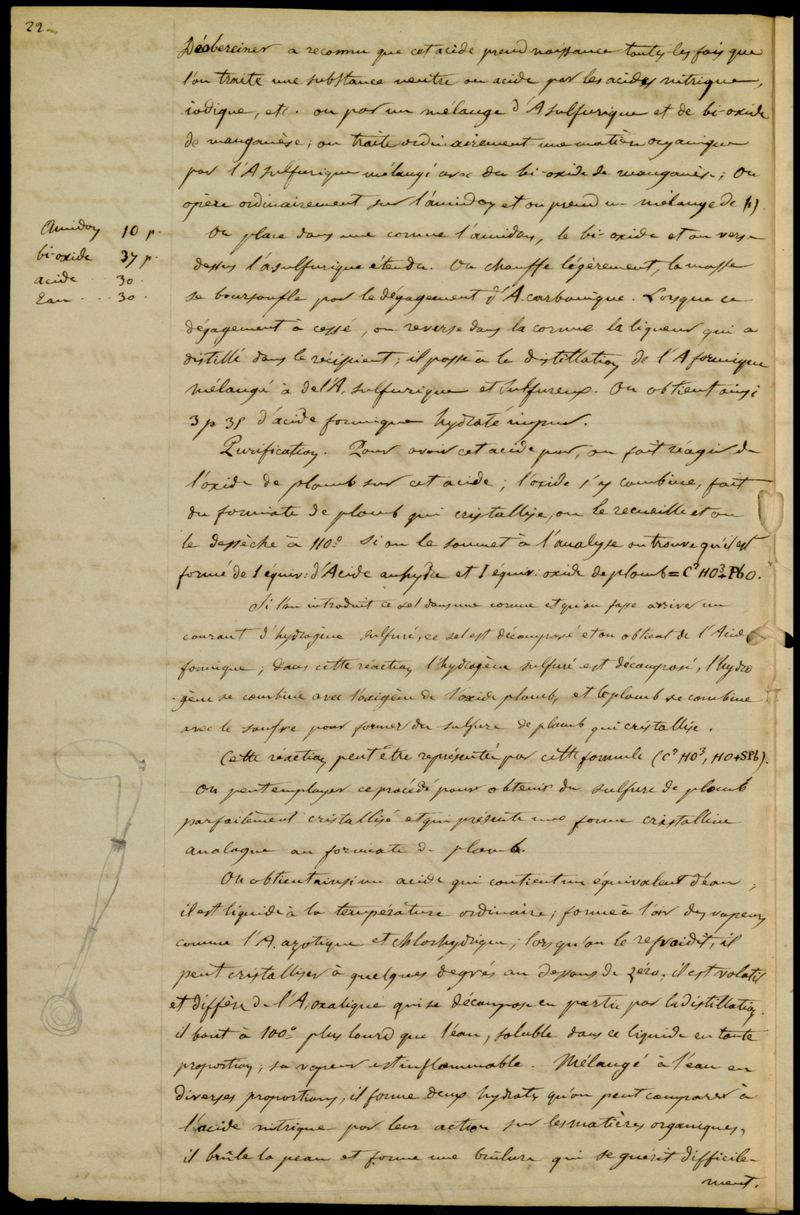 22
Déobereiner a reconnu que cet acide prend naissance toutes les fois que
l'on traite une substance neutre ou acide par les acides nitrique,
iodique, etc. ou par un mélange d'A sulfurique et de bi-oxide
de manganèse; on traite ordinairement une matière organique
par l'A sulfurique mélangé avec du bi-oxide de manganèse; On
opère ordinairement sur l'amidon et on prend un mélange de (1).
Amidon 10 p.
bi-oxide 37 p.
acide 30.
Eau ... 30.
On place dans une cornue l'amidon, le bi oxide et on verse
dessus l'a sulfurique étendu. On chauffe légèrement, la masse
se boursoufle par le dégagement d'A. carbonique. Lorsque ce
dégagement à cessé, on reverse dans la cornue la liqueur qui a
distillé dans le récipient; il passe à la distillation de l'A formique
mélangé à de l'A. sulfurique et sulfureux. On obtient ainsi
3 p 35 d'acide formique hydraté impur.
Purification. Pour avoir cet acide pur, on fait réagir de
l'oxide de plomb sur cet acide; l'oxide s'y combine, fait
du formiate de plomb qui cristallise, on le recueille et on
le dessèche à 110° Si on le soumet à l'analyse on trouve qu'il est
formé de 1 équiv: d'Acide anhydre et 1 équiv: oxide de plomb = C² HO³ + PbO.
Si l'on introduit ce sel dans une cornue et qu'on fasse arriver un
courant d'hydrogène sulfuré, ce sel est décomposé et on obtient de l'Acide
formique; dans cette réaction l'hydrogène sulfuré est décomposé, l'hydro
-gène se combine avec l'oxigène de l'oxide plomb, et le plomb se combine
avec le soufre pour former du sulfure de plomb qui cristallise.
Cette réaction peut être représentée par cette formule (C² HO³, HO + SPb).
On peut employer ce procédé pour obtenir du sulfure de plomb
parfaitement cristallisé et qui présente une forme cristalline
analogue au formiate de plomb.
On obtient ainsi un acide qui contient un équivalent d'eau;
il est liquide à la température ordinaire; forme à l'air des vapeurs
comme l'A. azotique et chlorhydrique; lorsqu'on le refroidit, il
peut cristalliser à quelques degrés au dessous de zéro, il est volatil
et diffère de l'A. oxalique qui se décompose en partie par la distillation.
il bout à 100° plus lourd que l'eau, soluble dans ce liquide en toute
proportion; sa vapeur est inflammable. Mélangé à l'eau en
diverses proportions, il forme deux hydrates qu'on peut comparer à
l'acide nitrique par leur action sur les matières organiques,
il brûle la peau et forme une brûlure qui se guérit difficile-
ment.